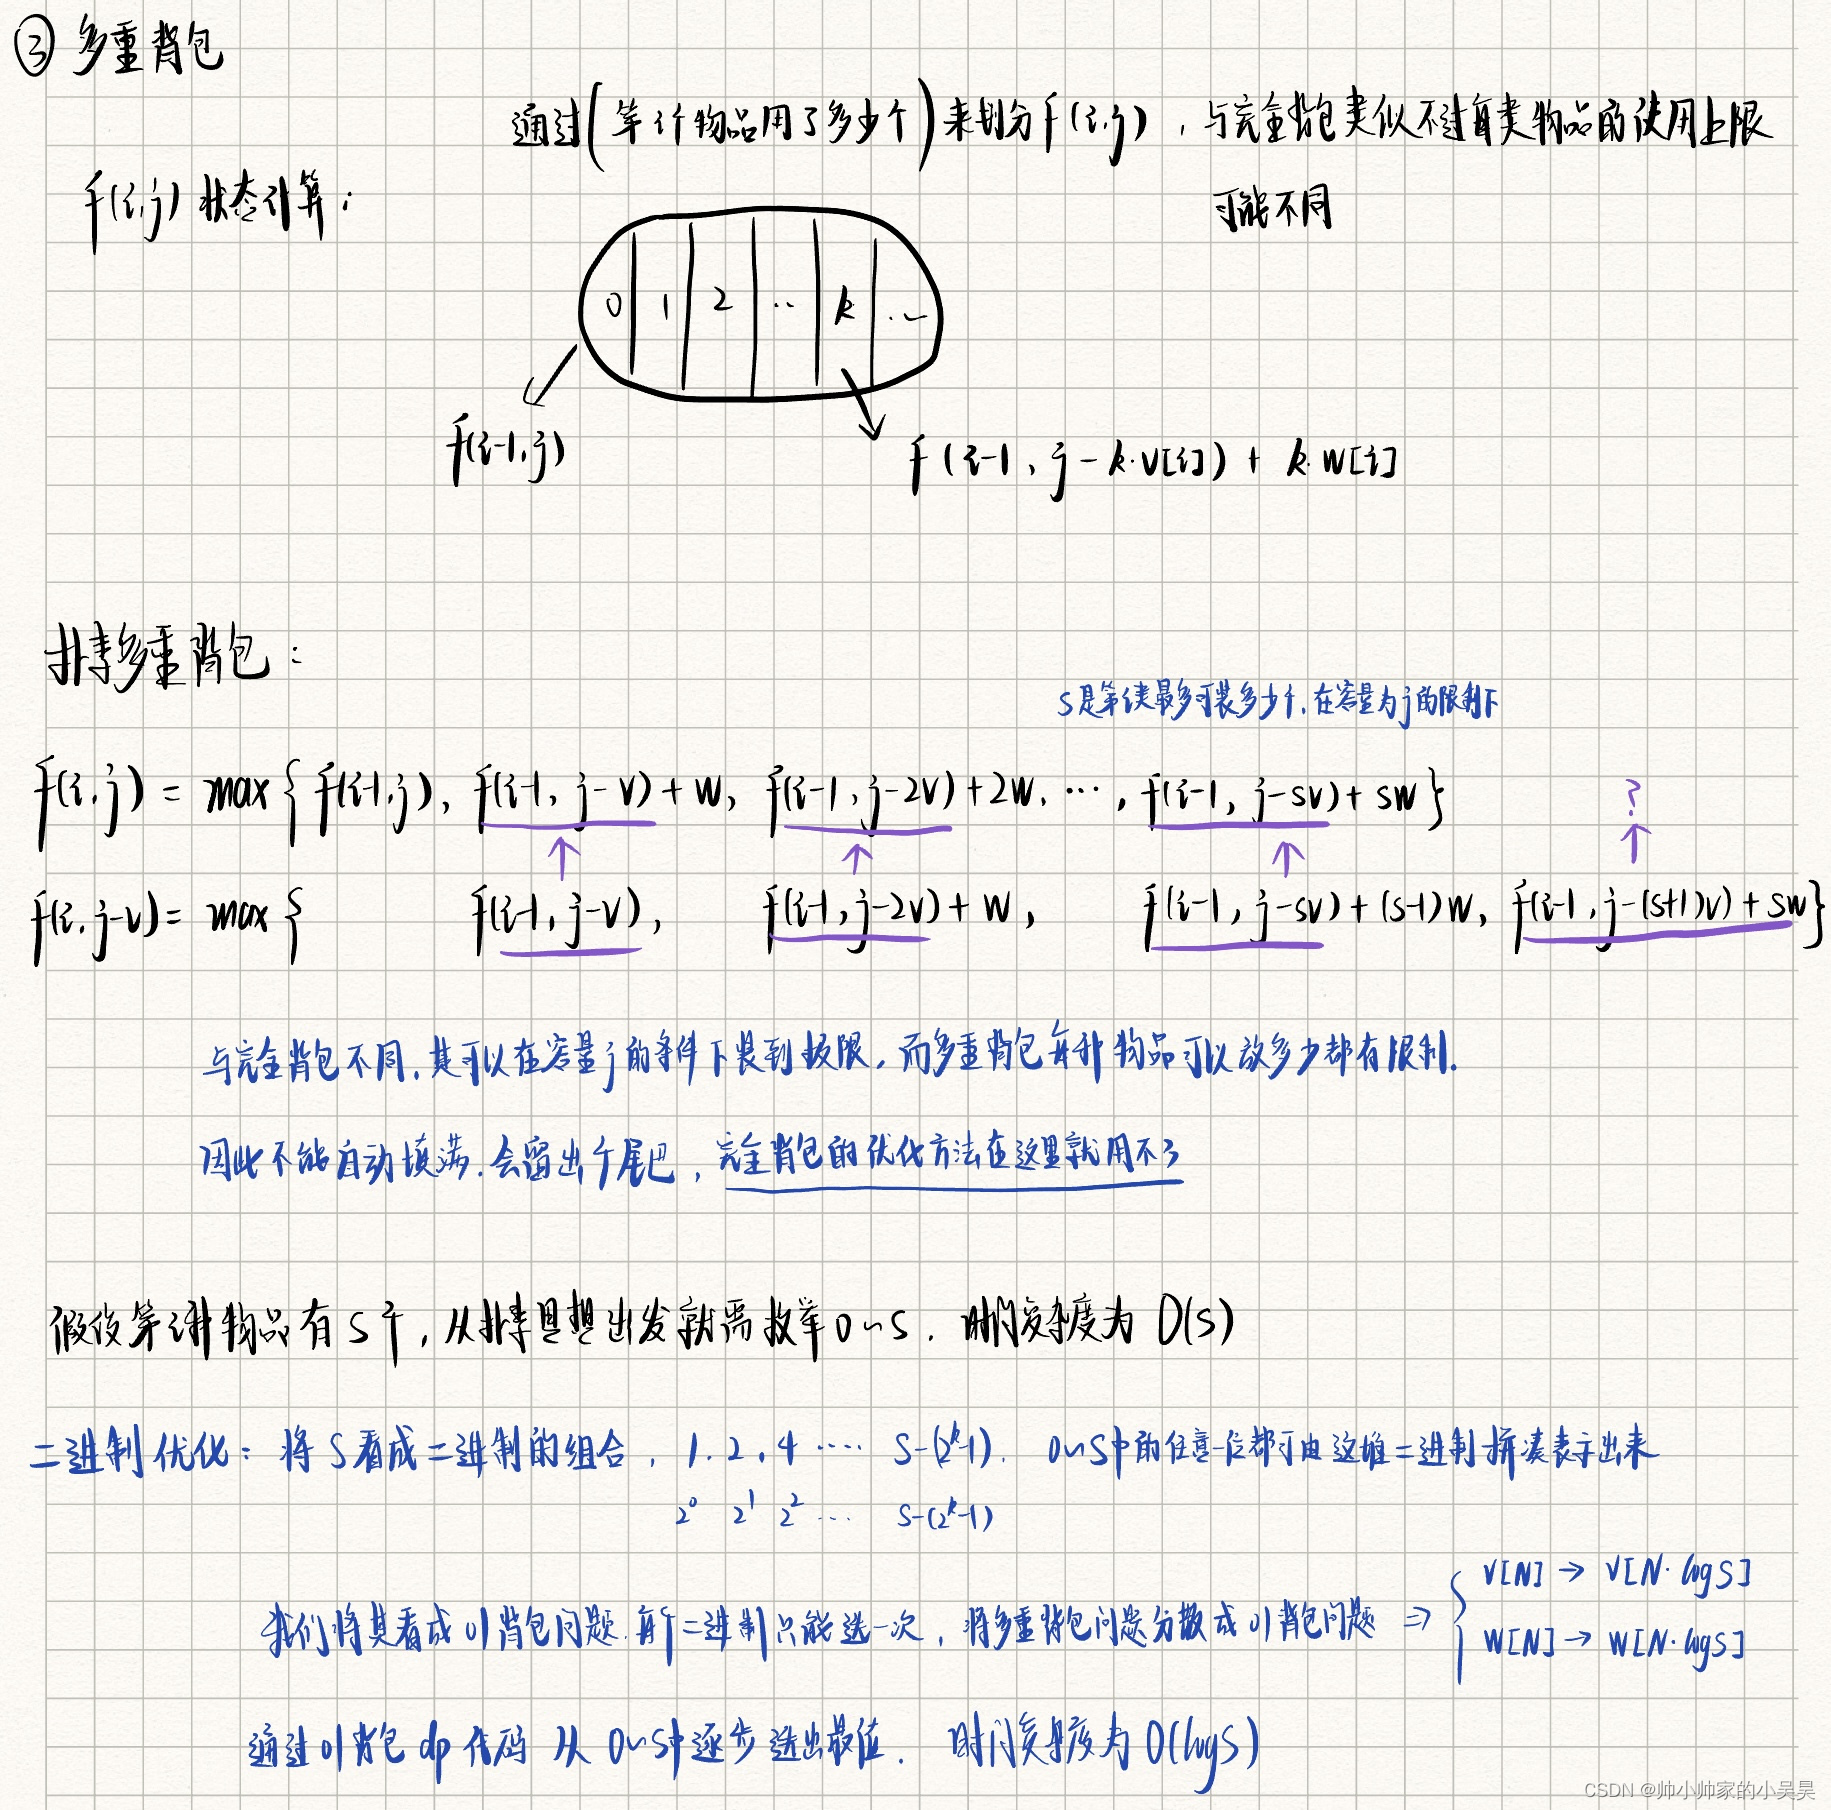 ③ 多重背包
通过(第i个物品用了多少个)来划分f(i,j),与完全背包类似不过每类物品的使用上限
可能不同
f(i,j)状态计算:
0 1 2 .. k ...
f(i-1,j)
f(i-1, j-k·v[i]) + k·w[i]
推导多重背包:
S是第i类最多可装多少个,在容量为j的限制下
f(i,j) = max{ f(i-1,j), f(i-1, j-v)+w, f(i-1, j-2v)+2w, ..., f(i-1, j-sv)+sw }
?
f(i,j-v) = max{ f(i-1,j-v), f(i-1,j-2v)+w, f(i-1, j-sv)+(s-1)w, f(i-1, j-(s+1)v)+sw }
与完全背包不同,其可以在容量j的条件下装到极限,而多重背包每种物品可以放多少都有限制.
因此不能自动填满.会留出个尾巴,完全背包的优化方法在这里就用不了
假设第i种物品有S个,从推导思想出发就需枚举0~S. 时间复杂度为 O(S)
二进制优化: 将S看成二进制的组合, 1.2.4 .... S-(2^k-1). 0~S中的任意一位都可由这堆二进制拼凑表示出来
2^0 2^1 2^2 ... S-(2^k-1)
我们将其看成01背包问题.每个二进制只能选一次,将多重背包问题分散成01背包问题 ⇒ { V[N] → V[N·logS]
W[N] → W[N·logS]
通过01背包dp代码 从0~S中逐步选出最值. 时间复杂度为O(logS)
CSDN @帅小帅家的小吴昊